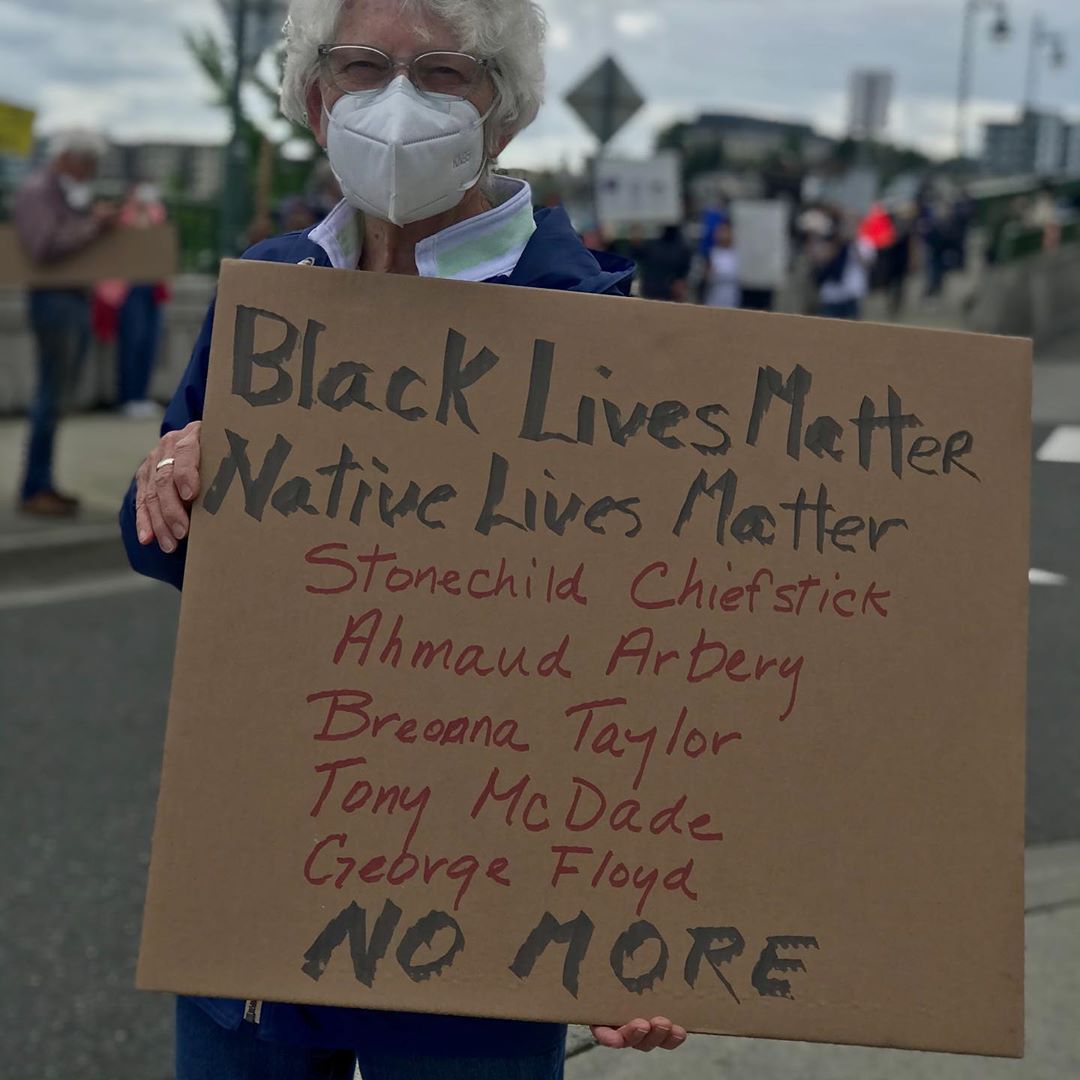 KN95
Black Lives Matter
Native Lives Matter
Stonechild Chiefstick
Ahmaud Arbery
Breonna Taylor
Tony McDade
George Floyd
NO MORE